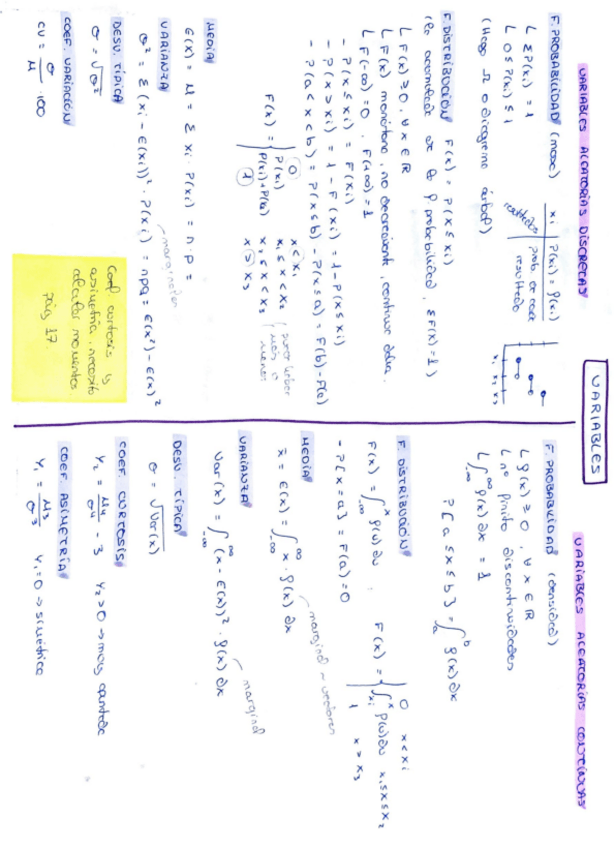 VARIABLES
VARIABLES ALEATORIAS DISCRETAS
F. PROBABILIDAD (masa)
L ΣP(xi) = 1
L 0 ≤ P(xi) ≤ 1
(Hago Ω o diagrama árbol)
xi | P(xi) = P(xi)
resultados | prob. de cada resultado
x1 x2 x3
F. DISTRIBUCIÓN F(x) = P(X ≤ xi)
L F(x) ≥ 0, ∀ x ∈ ℝ
L F(x) monótona, no decreciente, continua dcha.
L F(-∞) = 0, F(+∞) = 1
- P(x ≤ xi) = F(xi)
- P(x > xi) = 1 - F(xi) = 1 - P(x ≤ xi)
- P(a < x < b) = P(x ≤ b) - P(x ≤ a) = F(b) - F(a)
F(x) = { 0 x < x1
P(xi) x1 ≤ x < x2
P(xi)+P(x2) x2 ≤ x < x3
1 x > x3
más o menos
MEDIA
E(x) = μ = Σ xi · P(xi) = n · p =
VARIANZA
σ² = Σ (xi - E(xi))² · P(xi) = npq = E(x²) - E(x)²
DESV. TÍPICA
σ = √σ²
COEF. VARIACIÓN
CV = σ/μ · 100
Coef. curtosis y
asimetría, necesito
calcular momentos
pág 17.
VARIABLES ALEATORIAS CONTINUAS
F. PROBABILIDAD (densidad)
L f(x) ≥ 0, ∀ x ∈ ℝ
L nº finito discontinuidades
L ∫-∞^∞ f(x) dx = 1
P[a ≤ x ≤ b] = ∫a^b f(x) dx
F. DISTRIBUCIÓN
F(x) = ∫-∞^x f(u) du ; F(x) = { 0 x < xi
∫xi^x f(u) du x1 ≤ x ≤ x2
1 x > x3
- P[x = a] = F(a) = 0
MEDIA
x̄ = E(x) = ∫-∞^∞ x · f(x) dx
marginal - vectores
VARIANZA
Var(x) = ∫-∞^∞ (x - E(x))² · f(x) dx
marginal
DESV. TÍPICA
σ = √Var(x)
COEF. CURTOSIS
γ2 = μ4/σ⁴ - 3 γ2 > 0 → más apuntada
COEF. ASIMETRÍA
γ1 = μ3/σ³ γ1 = 0 → simétrica